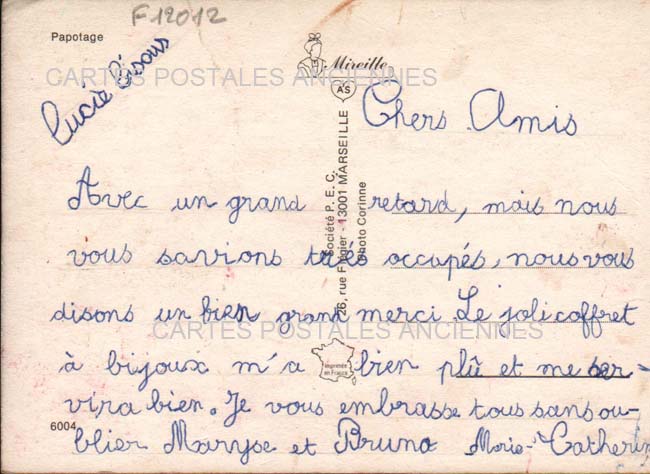 F12012
Papotage
Mireille
AS
CARTES POSTALES ANCIENNES
Lucie Bisous
Chers Amis
Société P. E. C.
26, rue Frégier - 13001 MARSEILLE
Photo Corinne
Avec un grand retard, mais nous
vous savions très occupés, nous vous
disons un bien grand merci. Le joli coffret
CARTES POSTALES ANCIENNES
à bijoux m'a bien plû et me ser-
Imprimée en France
vira bien. Je vous embrasse tous sans ou-
6004
blier Maryse et Bruno Marie-Catherin